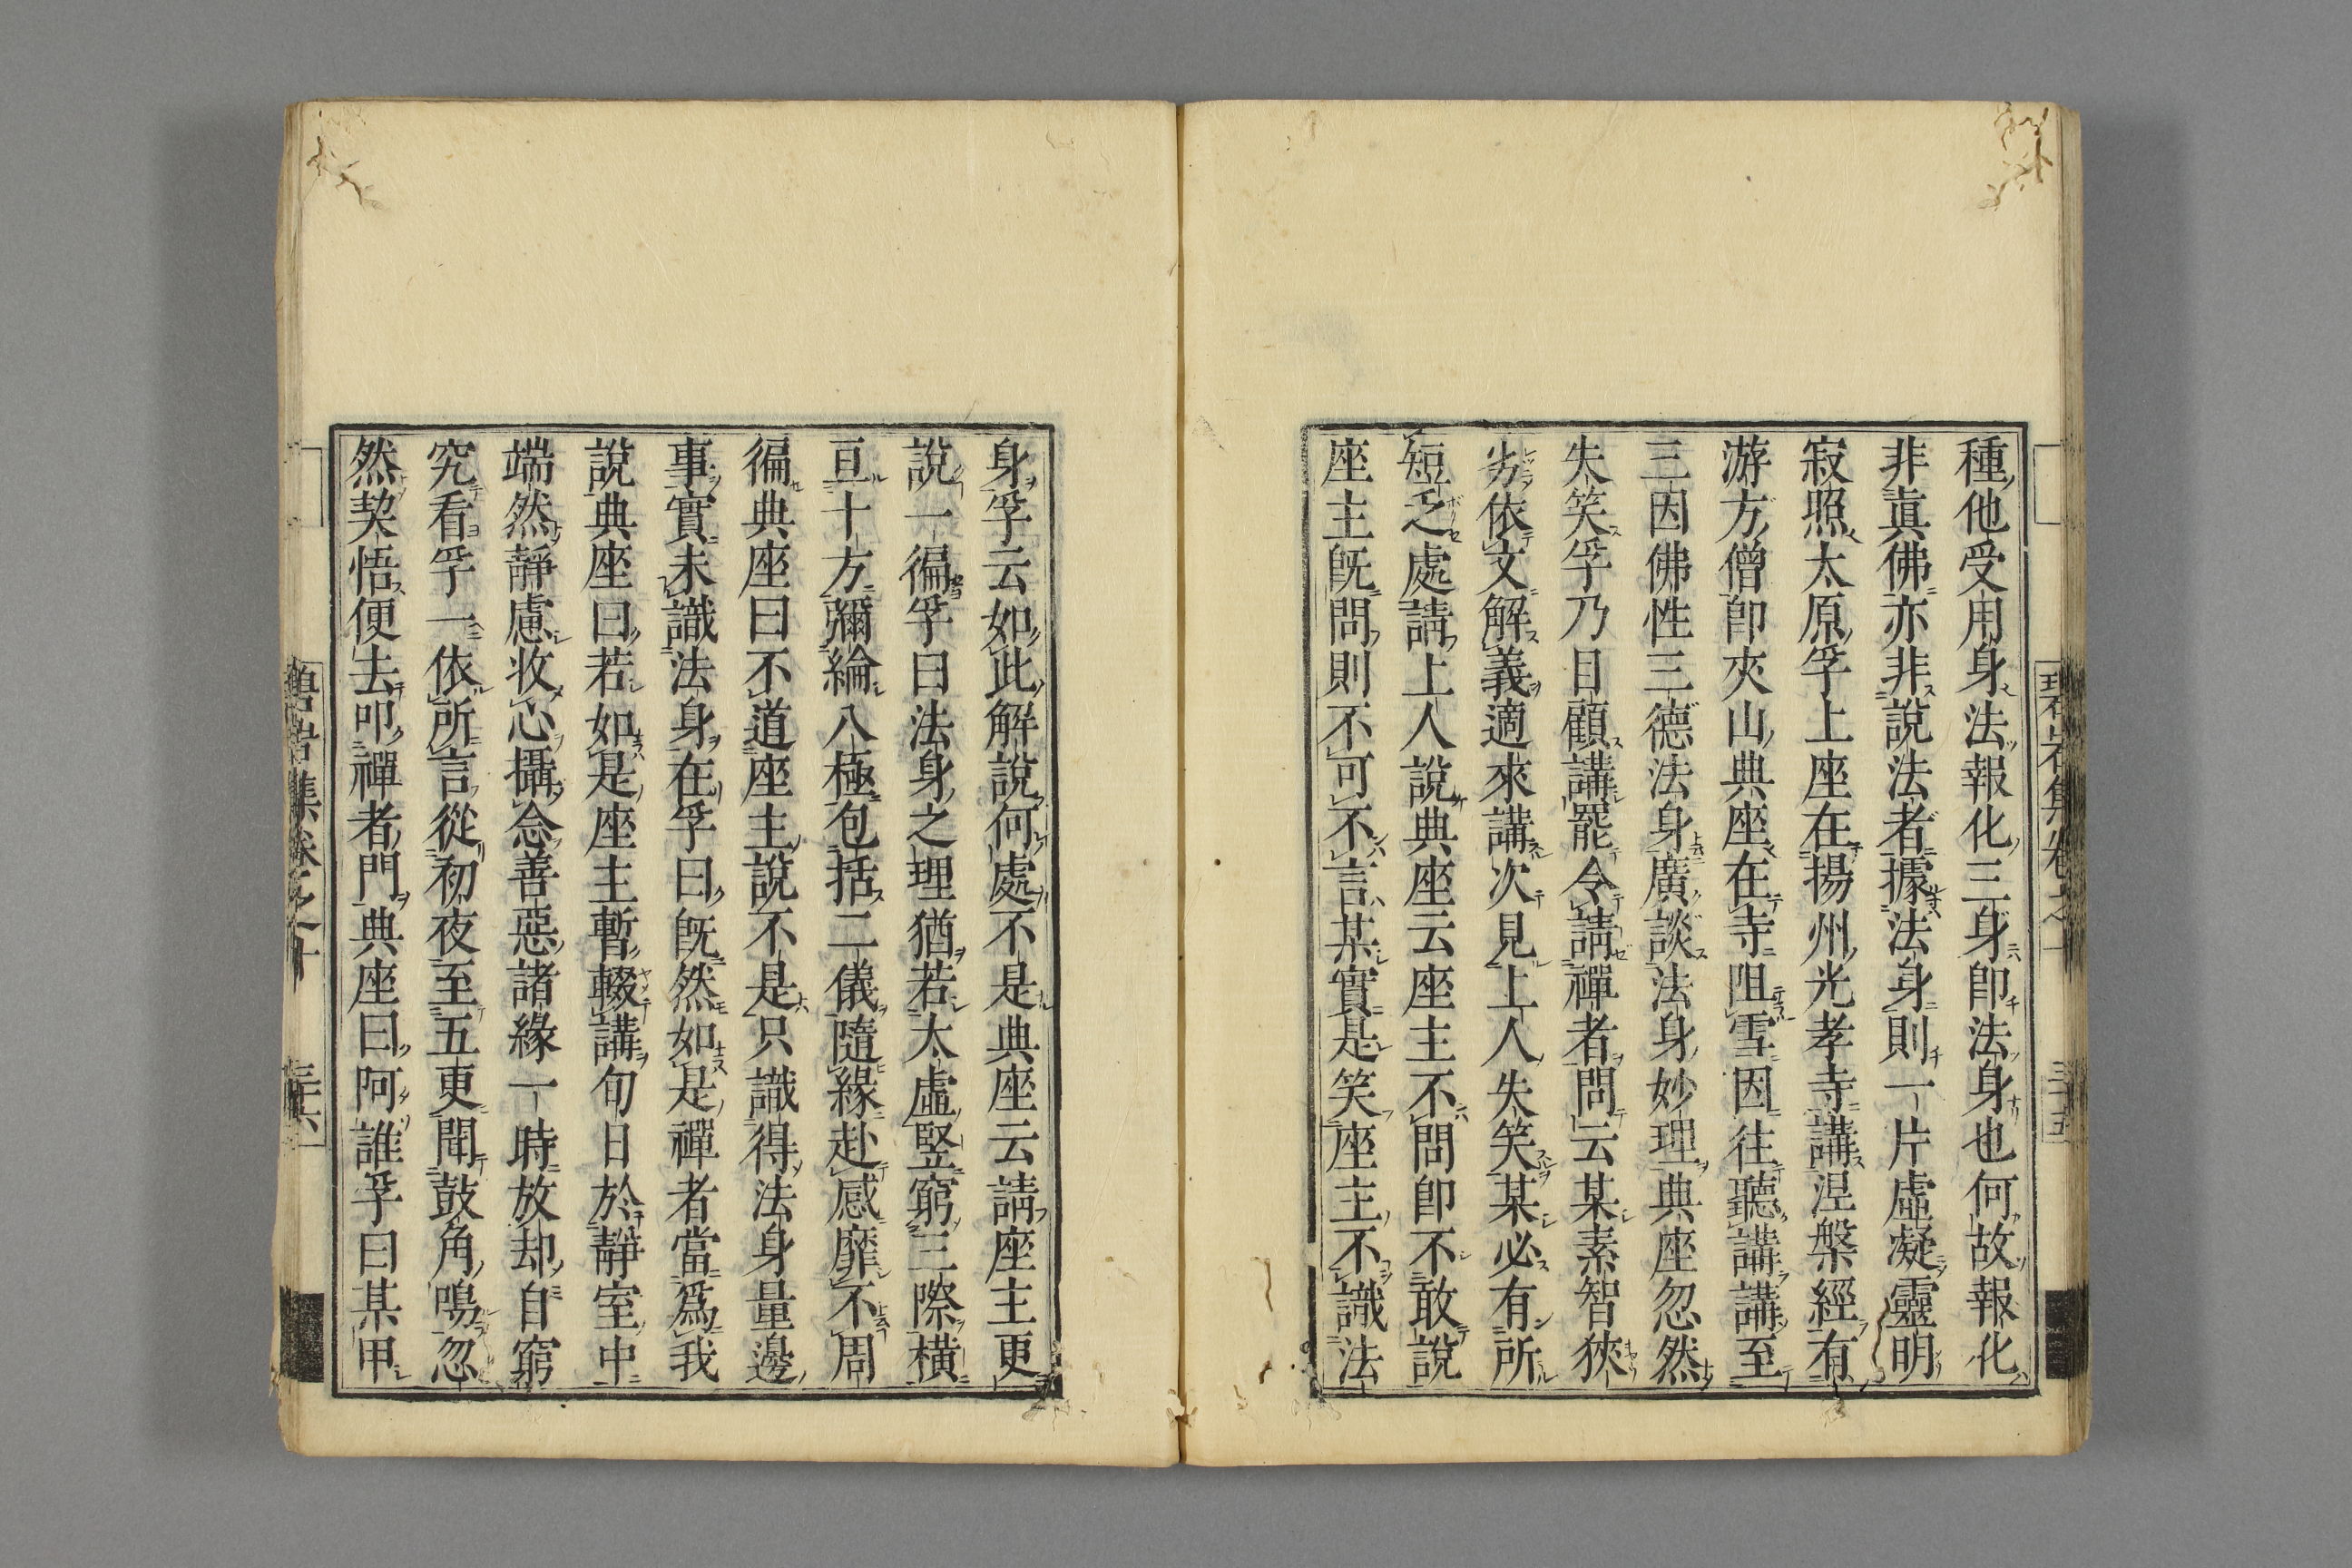 種他受用身法報化三身卽法身也何故報化
非眞佛亦非說法者據法身則一片虛凝靈明
寂照太原孚上座在揚州光孝寺講涅槃經有
游方僧卽夾山典座在寺阻雪因往聽講講至
三因佛性三德法身廣談法身妙理典座忽然
失笑孚乃目顧講罷令請禪者問云某素智狹
劣依文解義適來講次見上人失笑某必有所
短乏處請上人說典座云座主不問卽不敢說
座主旣問則不可不言某實是笑座主不識法
身孚云如此解說何處不是典座云請座主更
說一徧孚曰法身之理猶若太虛竪窮三際橫
亘十方彌綸八極包括二儀隨緣赴感靡不周
徧典座曰不道座主說不是只識得法身量邊
事實未識法身在孚曰旣然如是禪者當爲我
說典座曰若如是座主暫輟講旬日於靜室中
端然靜慮收心攝念善惡諸緣一時放却自窮
究看孚一依所言從初夜至五更聞鼓角鳴忽
然契悟便去叩禪者門典座曰阿誰孚曰某甲
碧岩集卷之十 三六